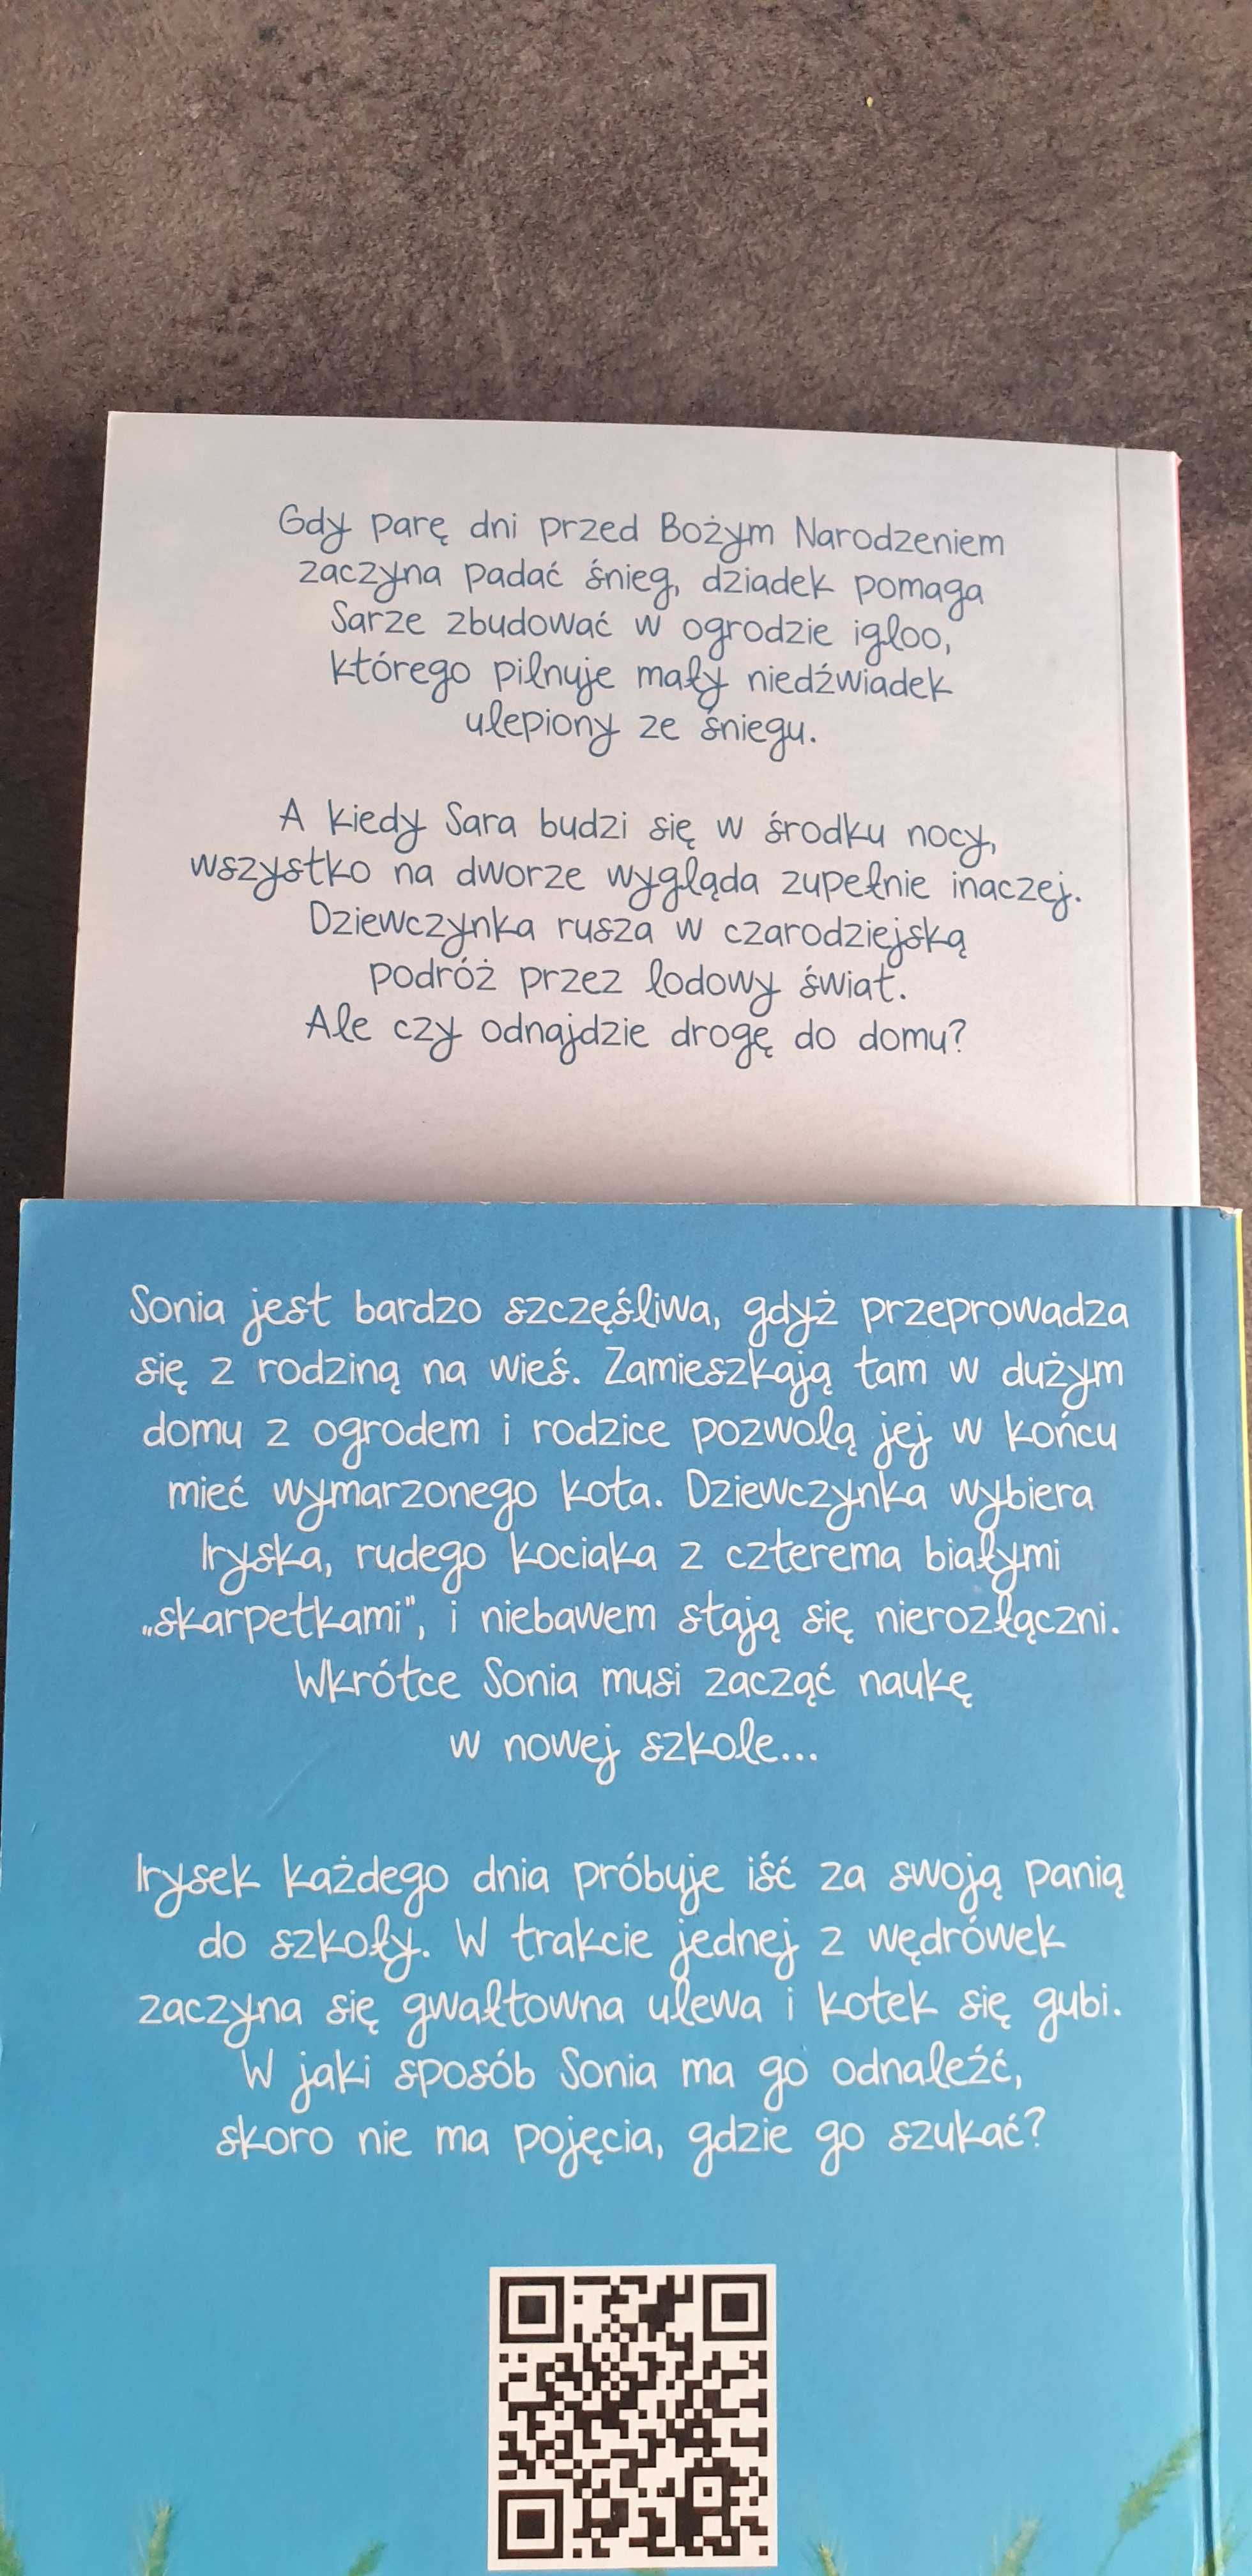 Gdy parę dni przed Bożym Narodzeniem
zaczyna padać śnieg, dziadek pomaga
Sarze zbudować w ogrodzie igloo,
którego pilnuje mały niedźwiadek
ulepiony ze śniegu.
A kiedy Sara budzi się w środku nocy,
wszystko na dworze wygląda zupełnie inaczej.
Dziewczynka rusza w czarodziejską
podróż przez lodowy świat.
Ale czy odnajdzie drogę do domu?
Sonia jest bardzo szczęśliwa, gdyż przeprowadza
się z rodziną na wieś. Zamieszkają tam w dużym
domu z ogrodem i rodzice pozwolą jej w końcu
mieć wymarzonego kota. Dziewczynka wybiera
Iryska, rudego kociaka z czterema białymi
„skarpetkami", i niebawem stają się nierozłączni.
Wkrótce Sonia musi zacząć naukę
w nowej szkole...
Irysek każdego dnia próbuje iść za swoją panią
do szkoły. W trakcie jednej z wędrówek
zaczyna się gwałtowna ulewa i kotek się gubi.
W jaki sposób Sonia ma go odnaleźć,
skoro nie ma pojęcia, gdzie go szukać?